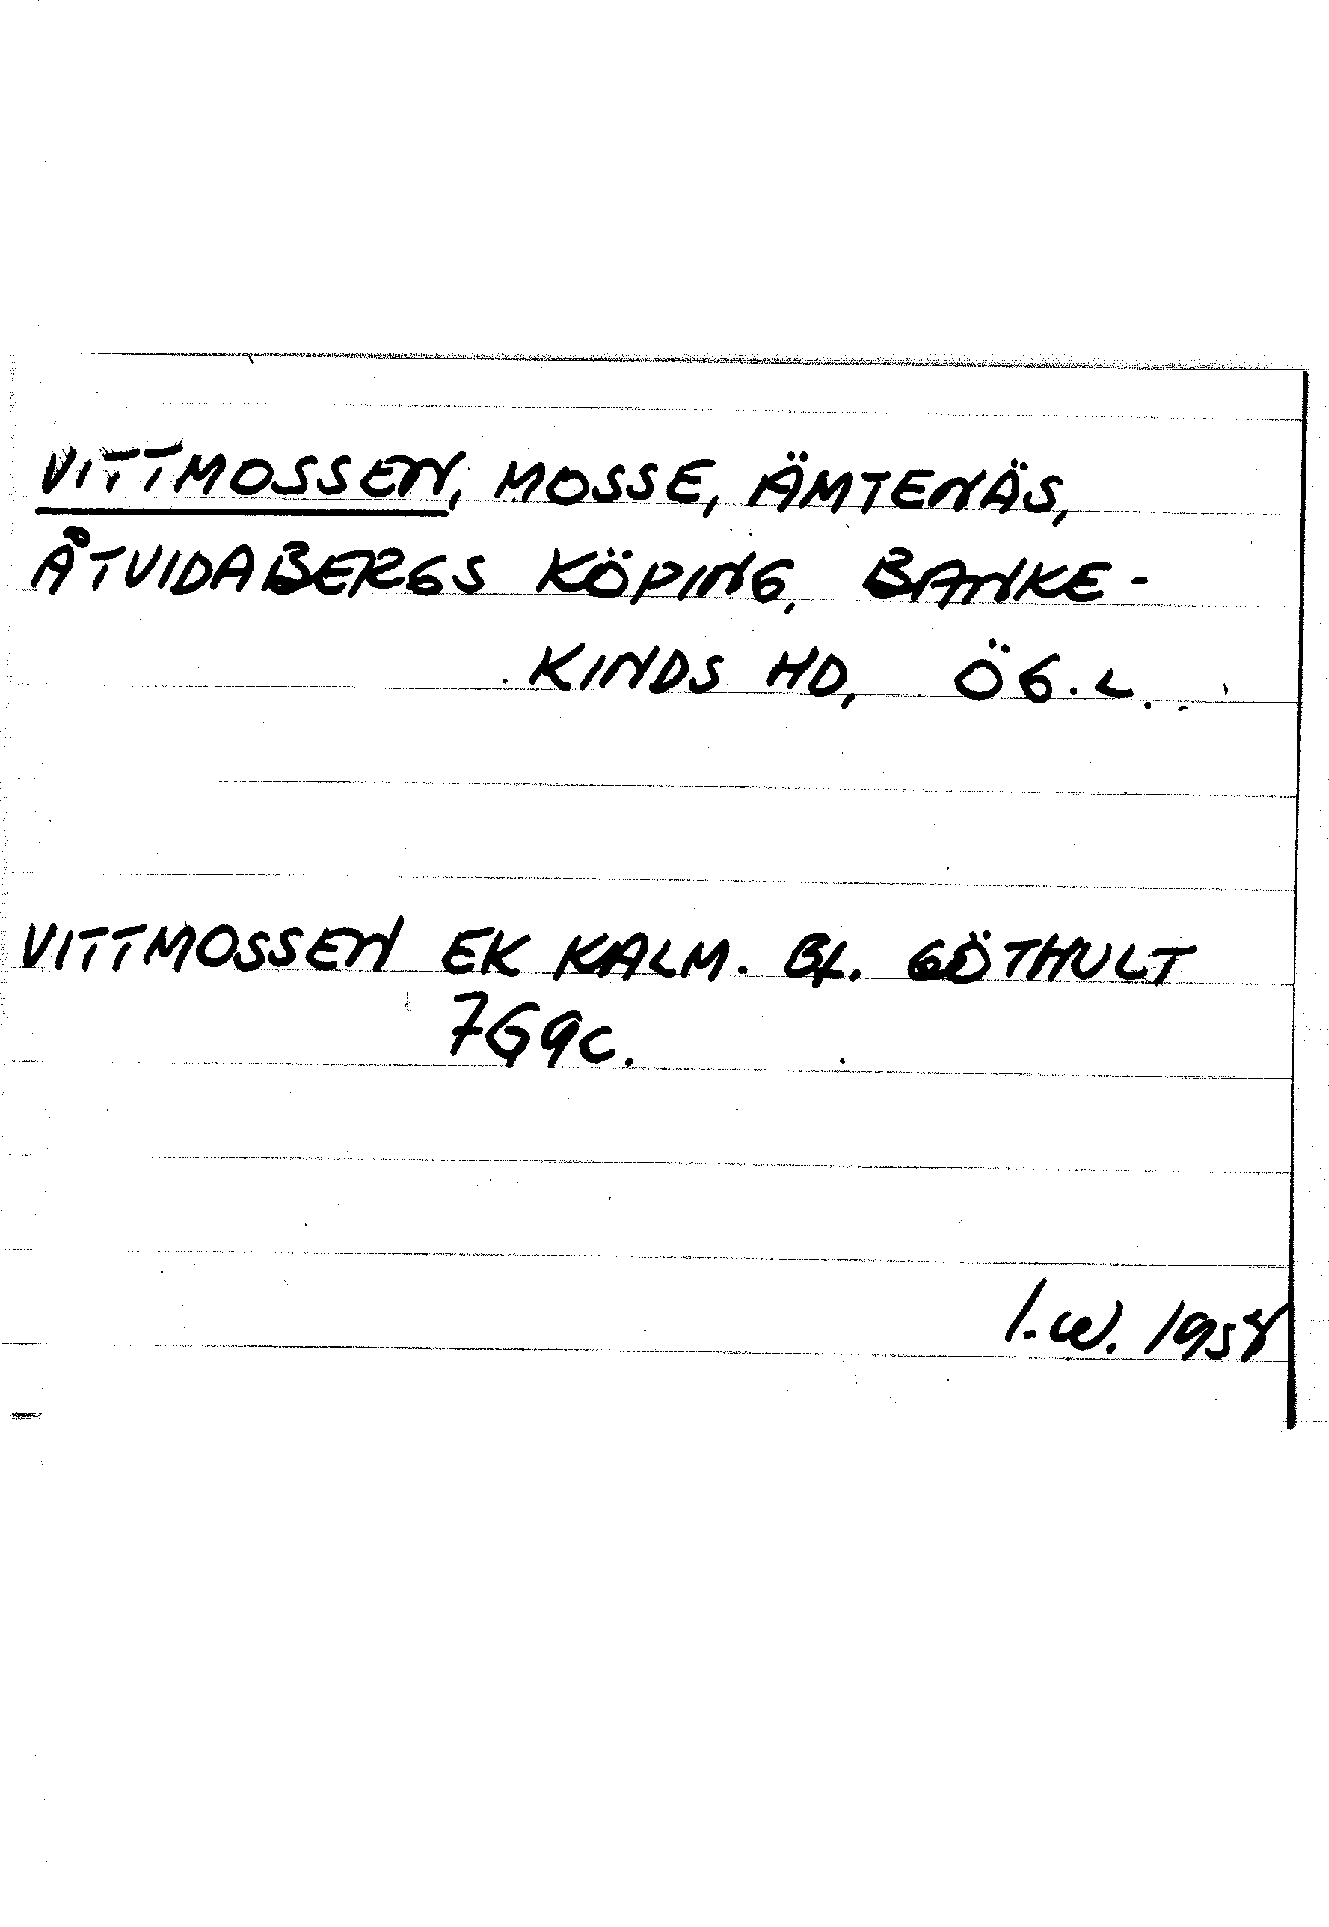 VITTMOSSEN, MOSSE, ÄMTENÄS,
ÅTVIDABERGS KÖPING, BANKE-
KINDS HD, ÖG.L.
VITTMOSSEN EK KALM. BL. GÖTHULT
7G9C.
I.W. 1958